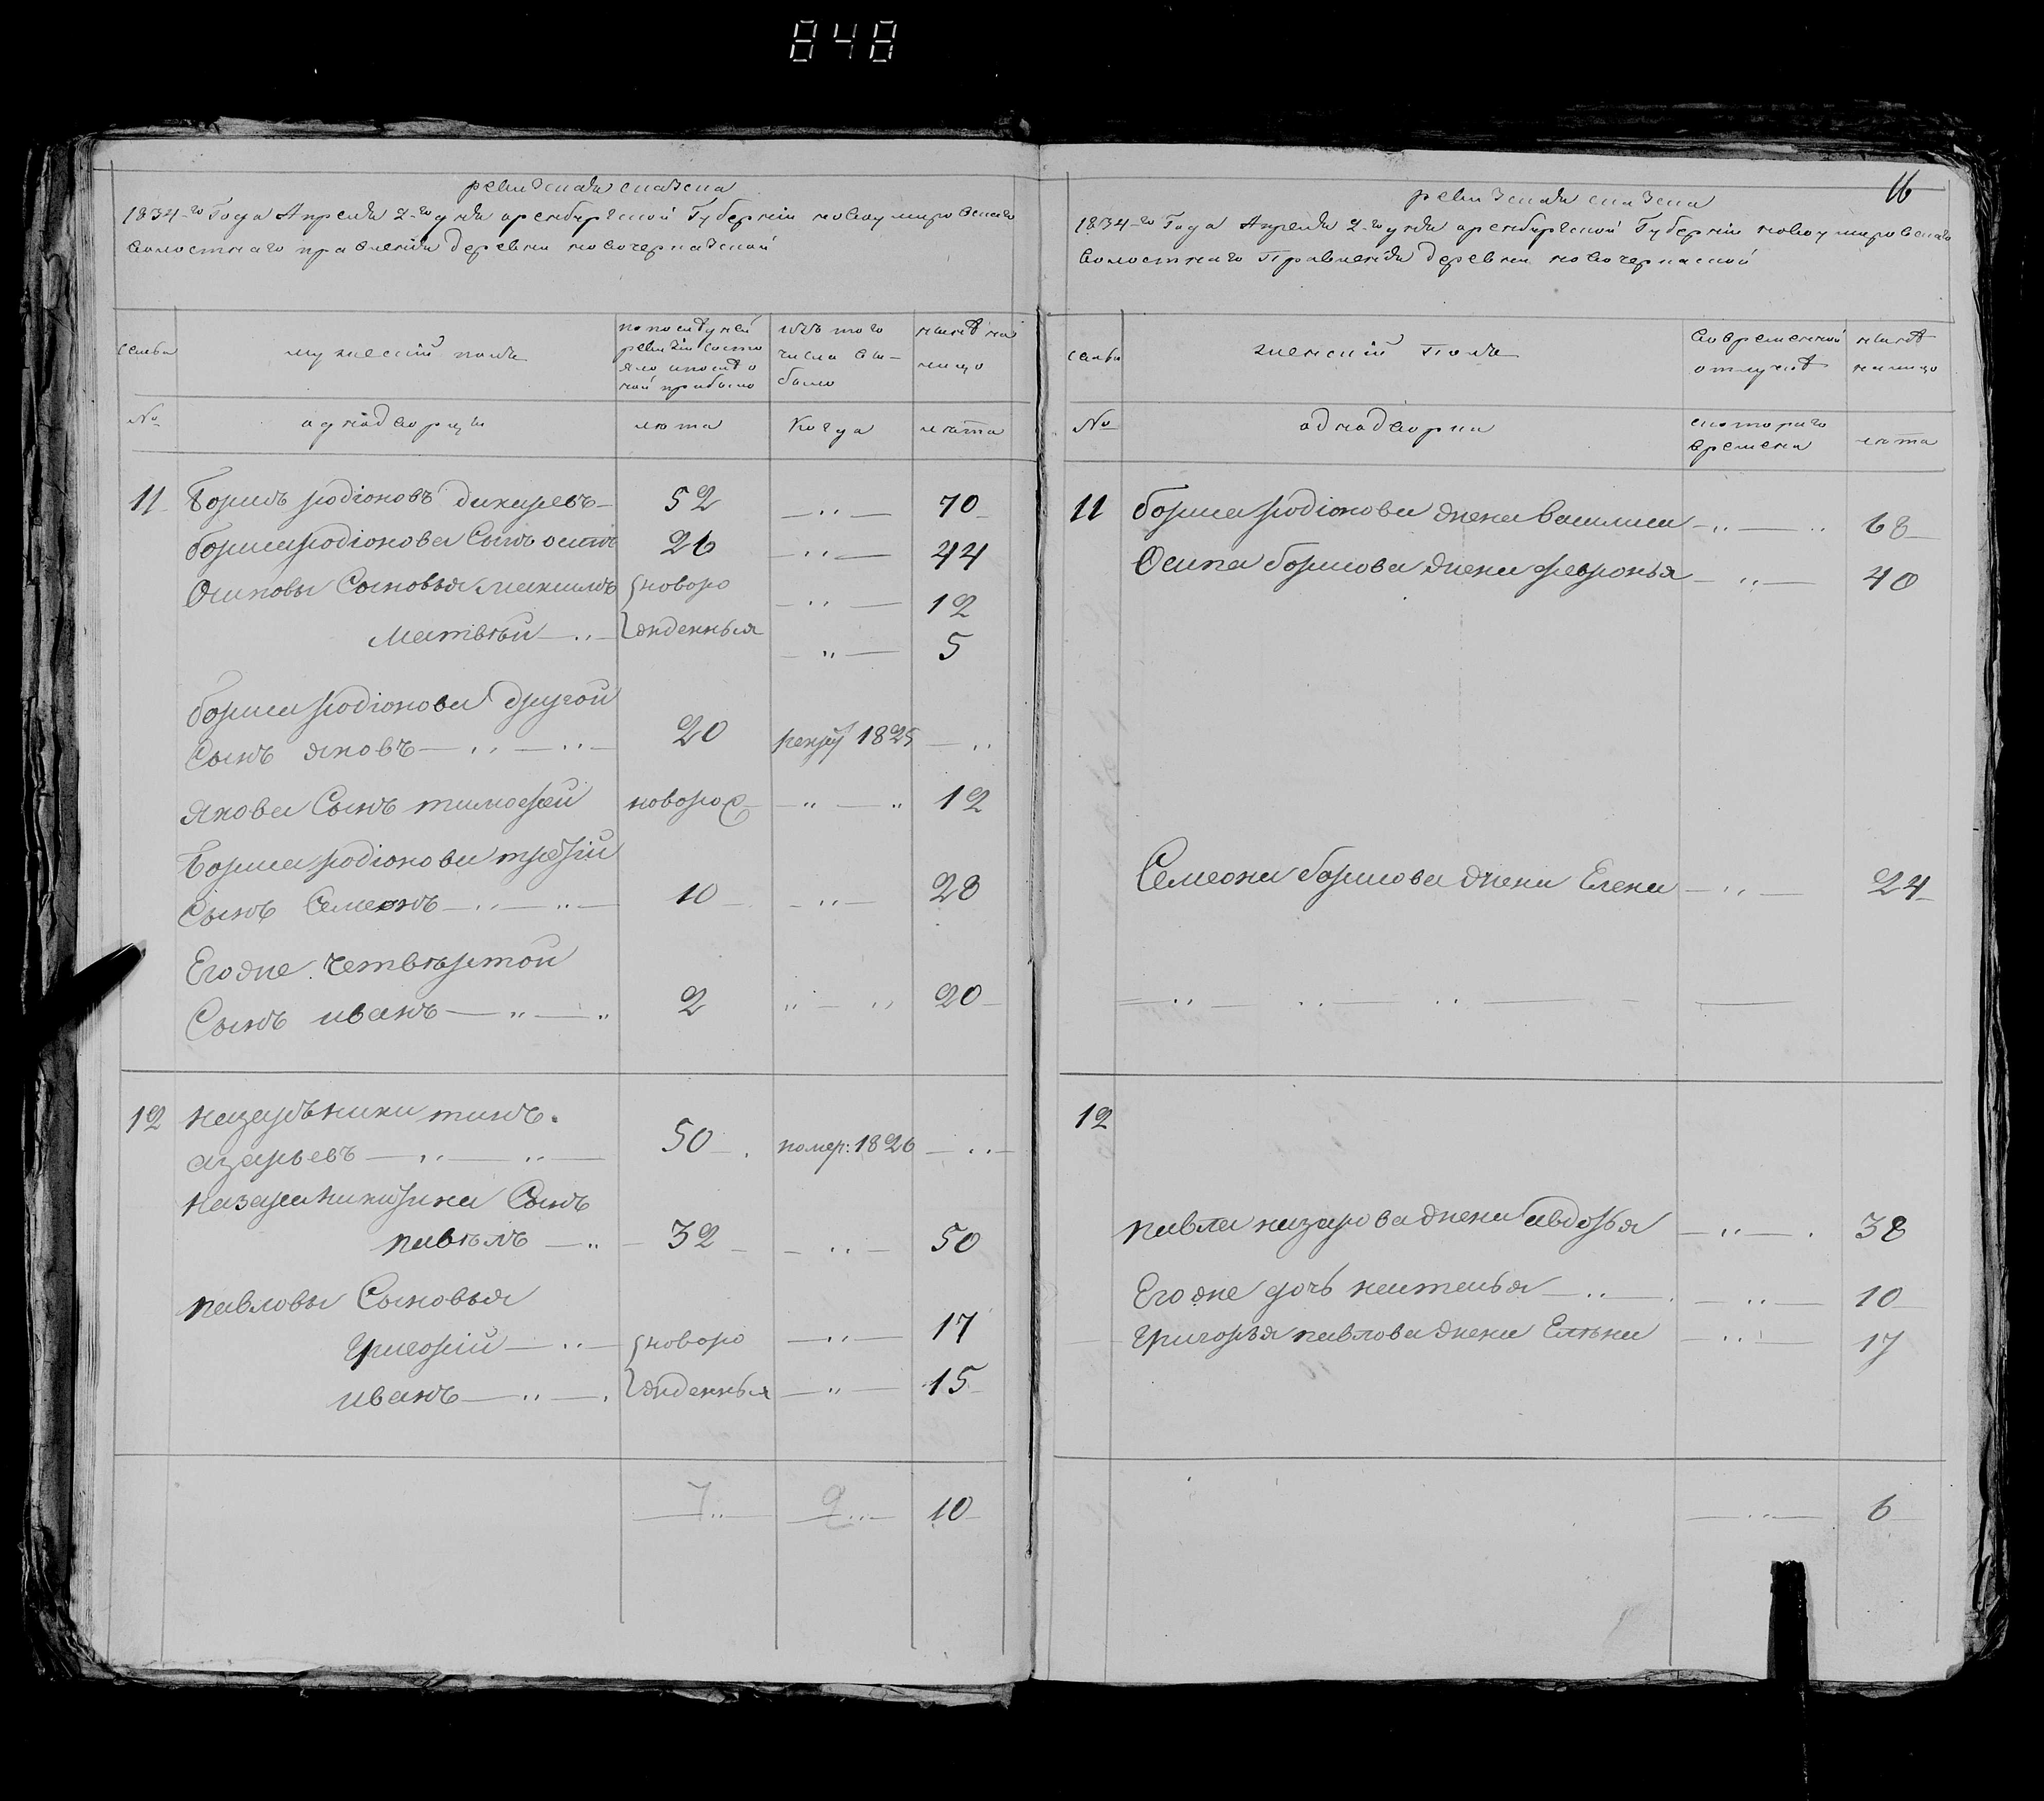 848
ревизская сказка
1834-го Года Апреля 2-го дня оренбургской Губернiи новоумировскаго
волостнаго правленiя деревни новочеркаской
семьи
мужескiй полъ
по последней
ревизiи состо
яло и после о
ной прибыло
изъ того
числа вы-
было
ныне на
лицо
№
однодворцы
лета
Когда
лета
11 Борисъ родiоновъ дикаревъ 52 70
бориса родiонова Сынъ осипъ 26 44
Осиповы Сыновья максимъ новоро 12
Матвей жденныя 5
бориса родiонова другой
Сынъ яковъ 20 рекру 1825
якова Сынъ тимофей новорож 12
Бориса родiонова третiй
Сынъ Семеонъ 10 28
Егоже четвертой
Сынъ иванъ 2 20
12 назаръ никитинъ
азарьевъ 50 помер: 1826
Назара Никитина Сынъ
павелъ 32 50
павловы Сыновья
григорiй новоро 17
иванъ жденныя 15
7 2 10
16
ревизская сказка
1834-го Года Апреля 2-го дня оренбургской Губернiи новоумировскаго
волостнаго Правленiя деревни новочеркаской
семьи
женскiй полъ
во временной
отлучке
ныне
на лицо
№
однодворки
скотораго
времени
лета
11 бориса родiонова жена василиса 68
Осипа борисова жена февронья 40
Семеона борисова жена Елена 24
12
павла назарова жена авдотья 38
Егоже дочь настасья 10
григорья павлова жена Елена 17
6